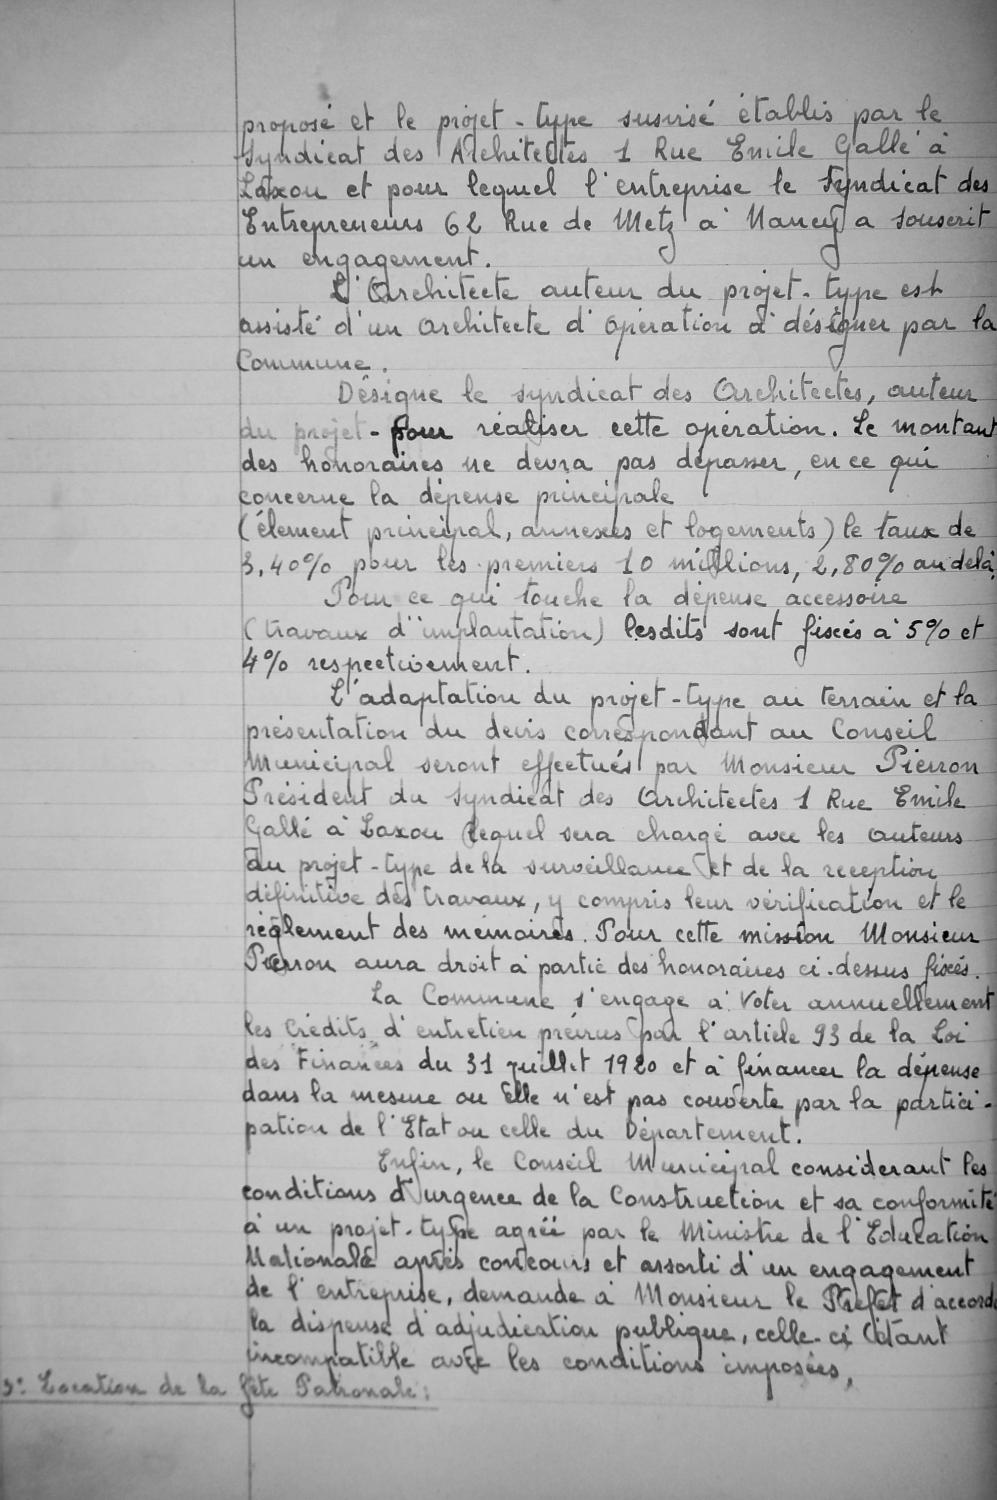 proposé et le projet-type susvisé établis par le
Syndicat des Architectes 1 Rue Emile Gallé à
Laxou et pour lequel l'entreprise le Syndicat des
Entrepreneurs 62 Rue de Metz à Nancy a souscrit
un engagement.
L'Architecte auteur du projet-type est
assisté d'un Architecte d'opération à désigner par la
Commune.
Désigne le syndicat des Architectes, auteur
du projet-pour réaliser cette opération. Le montant
des honoraires ne devra pas dépasser, en ce qui
concerne la dépense principale
(élement principal, annexes et logements) le taux de
3,40% pour les premiers 10 millions, 2,80% au delà,
Pour ce qui touche la dépense accessoire
(travaux d'implantation) lesdits sont fixés à 5% et
4% respectivement.
L'adaptation du projet-type au terrain et la
présentation du devis correspondant au Conseil
Municipal seront effectués par Monsieur Pierron
Président du Syndicat des Architectes 1 Rue Emile
Gallé à Laxou lequel sera chargé avec les auteurs
du projet-type de la surveillance et de la reception
définitive des travaux, y compris leur vérification et le
règlement des mémoires. Pour cette mission Monsieur
Pierron aura droit à partie des honoraires ci-dessus fixés.
La Commune s'engage à voter annuellement
les crédits d'entretien prévus par l'article 93 de la Loi
des Finances du 31 juillet 1920 et à financer la dépense
dans la mesure ou elle n'est pas couverte par la partici-
pation de l'Etat ou celle du Département.
Enfin, le Conseil Municipal considerant les
conditions d'urgence de la Construction et sa conformité
à un projet-type agréé par le Ministre de l'Education
Nationale après concours et assorti d'un engagement
de l'entreprise, demande à Monsieur le Préfet d'accorde
la dispense d'adjudication publique, celle-ci étant
incompatible avec les conditions imposées,
3°: Location de la fête Patronale: